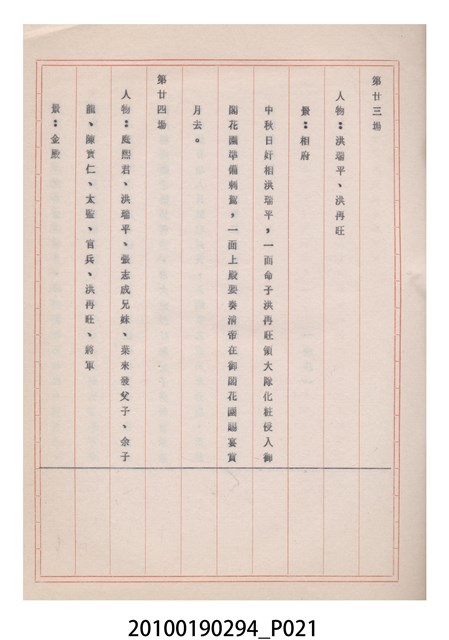 第廿三場
人物：洪瑞平、洪再旺
景：相府
中秋日奸相洪瑞平，一面命子洪再旺領大隊化粧侵入御
閣花園準備刺駕，一面上殿要奏清帝在御閣花園賜宴賞
月去。
第廿四場
人物：龐熙君、洪瑞平、張志成兄妹、葉來發父子、余子
龍、陳寶仁、太監、官兵、洪再旺、將軍
景：金殿
20100190294_P021